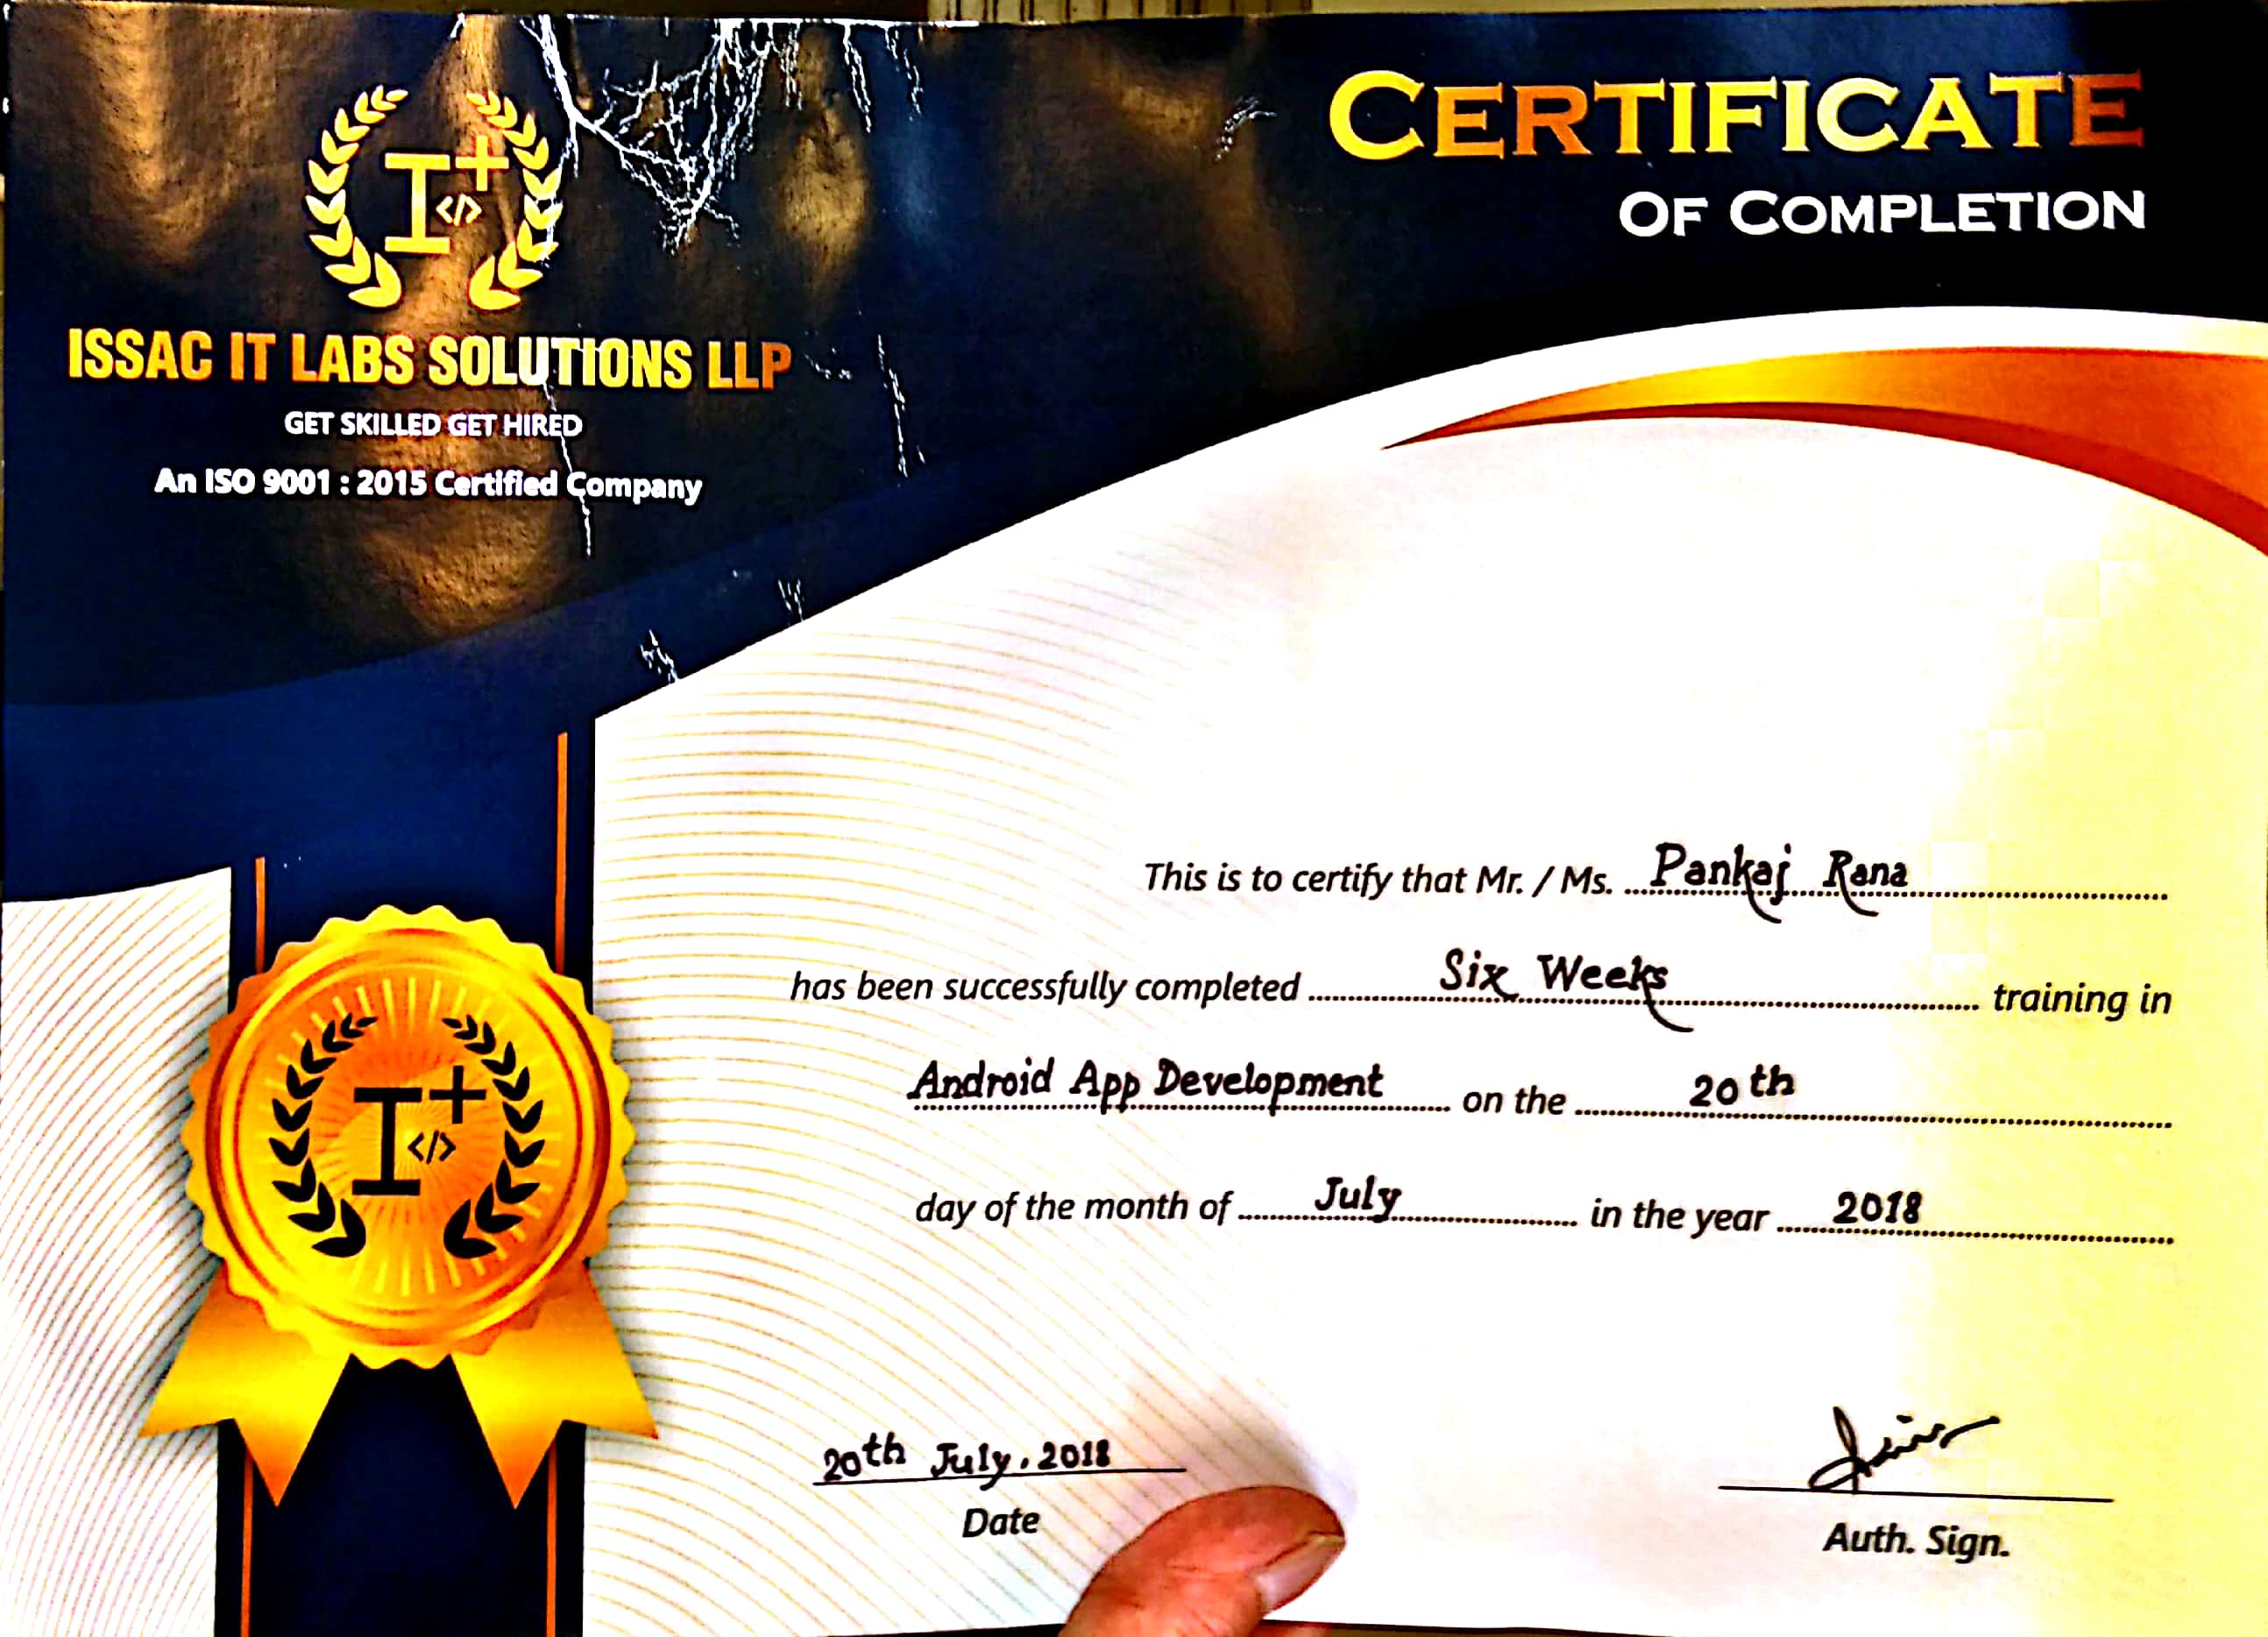 I+
</>
ISSAC IT LABS SOLUTIONS LLP
GET SKILLED GET HIRED
An ISO 9001 : 2015 Certified Company
CERTIFICATE
OF COMPLETION
This is to certify that Mr. / Ms. Pankaj Rana
has been successfully completed Six Weeks training in
Android App Development on the 20th
day of the month of July in the year 2018
I+
</>
20th July, 2018
Date
Auth. Sign.